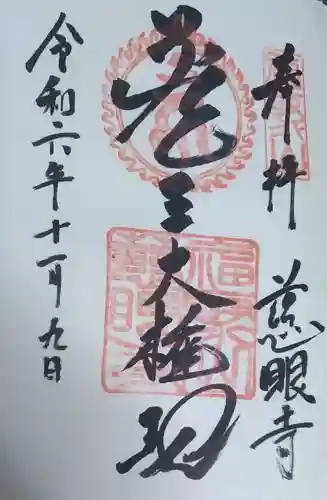 奉拝
慈眼寺
老三大権現
令和六年十一月九日